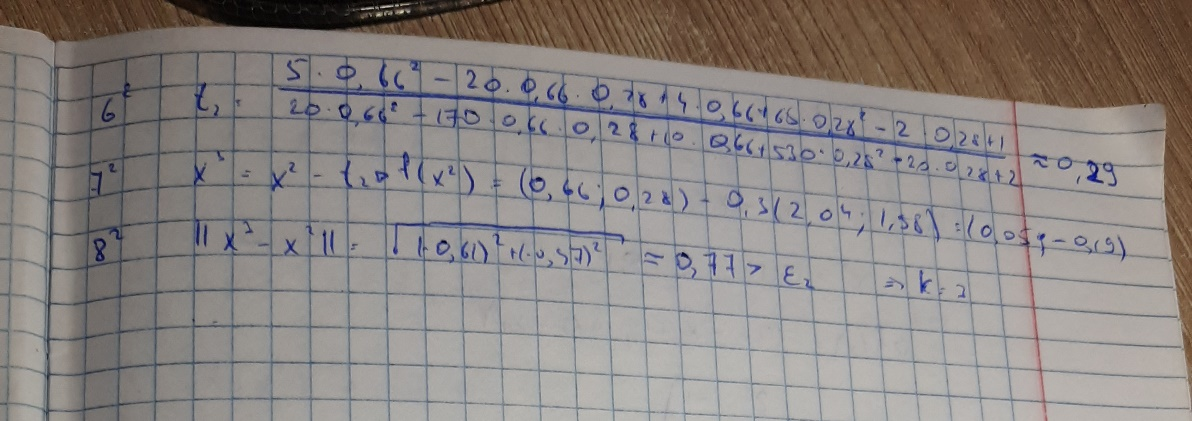 6² t₂ = (5 · 0,66² - 20 · 0,66 · 0,28 + 4 · 0,66 + 65 · 0,28² - 2 0,28 + 1) / (20 · 0,66² - 170 0,66 · 0,28 + 10 · 0,66 + 530 · 0,28² + 20 · 0,28 + 2) ≈ 0,29
7² x³ = x² - t₂∇f(x²) = (0,66 ; 0,28) - 0,3(2,04 ; 1,58) = (0,05; -0,19)
8² ||x³ - x²|| = √((-0,61)² + (-0,37)²) ≈ 0,77 > ε₂ ⇒ k = 2